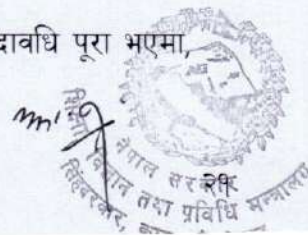 दावधि पूरा भएमा,
नेपाल सरकार
२१
विज्ञान तथा प्रविधि मन्त्रालय
सिंहदरबार,